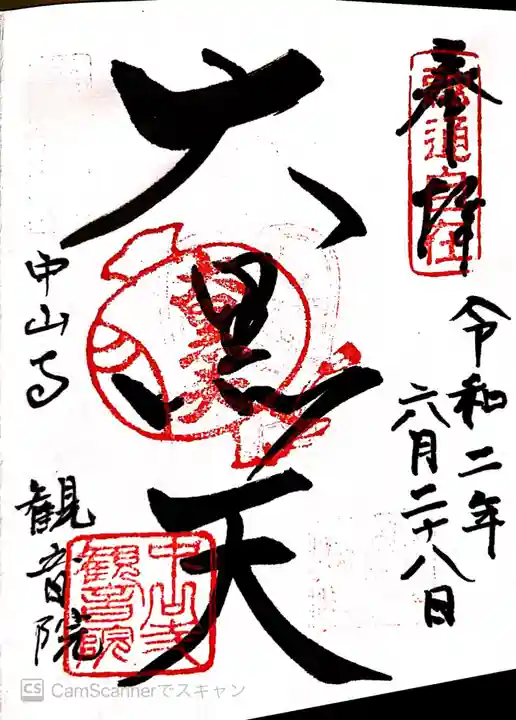 奉拝
融通自在
令和二年
六月二十八日
大黒天
中山寺
観音院
中山寺
観音院
CS CamScannerでスキャン